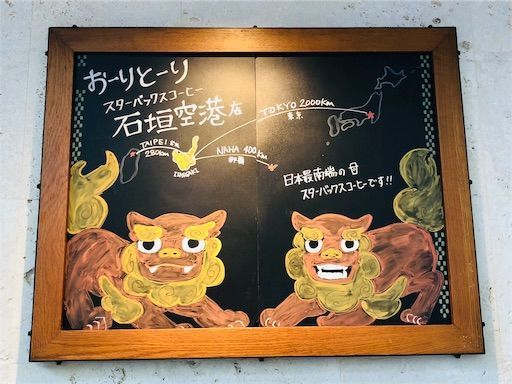 おーりとーり
スターバックスコーヒー
石垣空港店
TOKYO 2000km
東京
TAIPEI 台北
280km
ISHIGAKI
NAHA 400km
那覇
日本最南端の
スターバックスコーヒーです!!